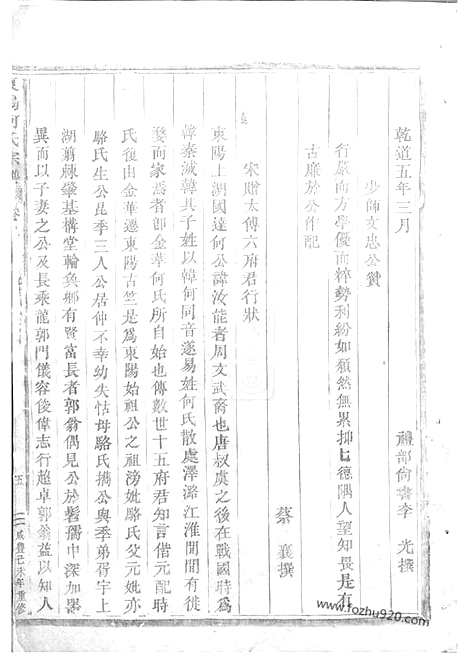 乾道五年三月
禮部尚書李 光撰
少師文忠公贊
行嚴而方學優而粹勢利紛如頹然無累抑七德隅人望知畏是有
古廉於公作配
宋贈太傅六府君行狀
蔡 襄撰
東陽上湖國達何公諱汝能者周文武裔也唐叔虞之後在戰國時爲
韓秦滅韓其子姓以韓何同音遂易姓何氏散處澤潞江淮閒閒有徙
婺而家焉者卽金華何氏所自始也傳數世十五府君知言偕元配時
氏復由金華遷東陽古竺是爲東陽始祖公之祖滂妣駱氏父元妣亦
駱氏生公昆季三人公居仲不幸幼失怙母駱氏携公與季弟胥宇上
湖剪棘肇基構堂輪奐鄉有賢富長者郭翁偶見公於髫孺中深加器
異而以子妻之公及長乘龍郭門儀容俊偉志行超卓郭翁益以知人
何氏宗譜
五
咸豐己未年重修
www.fozhu920.com